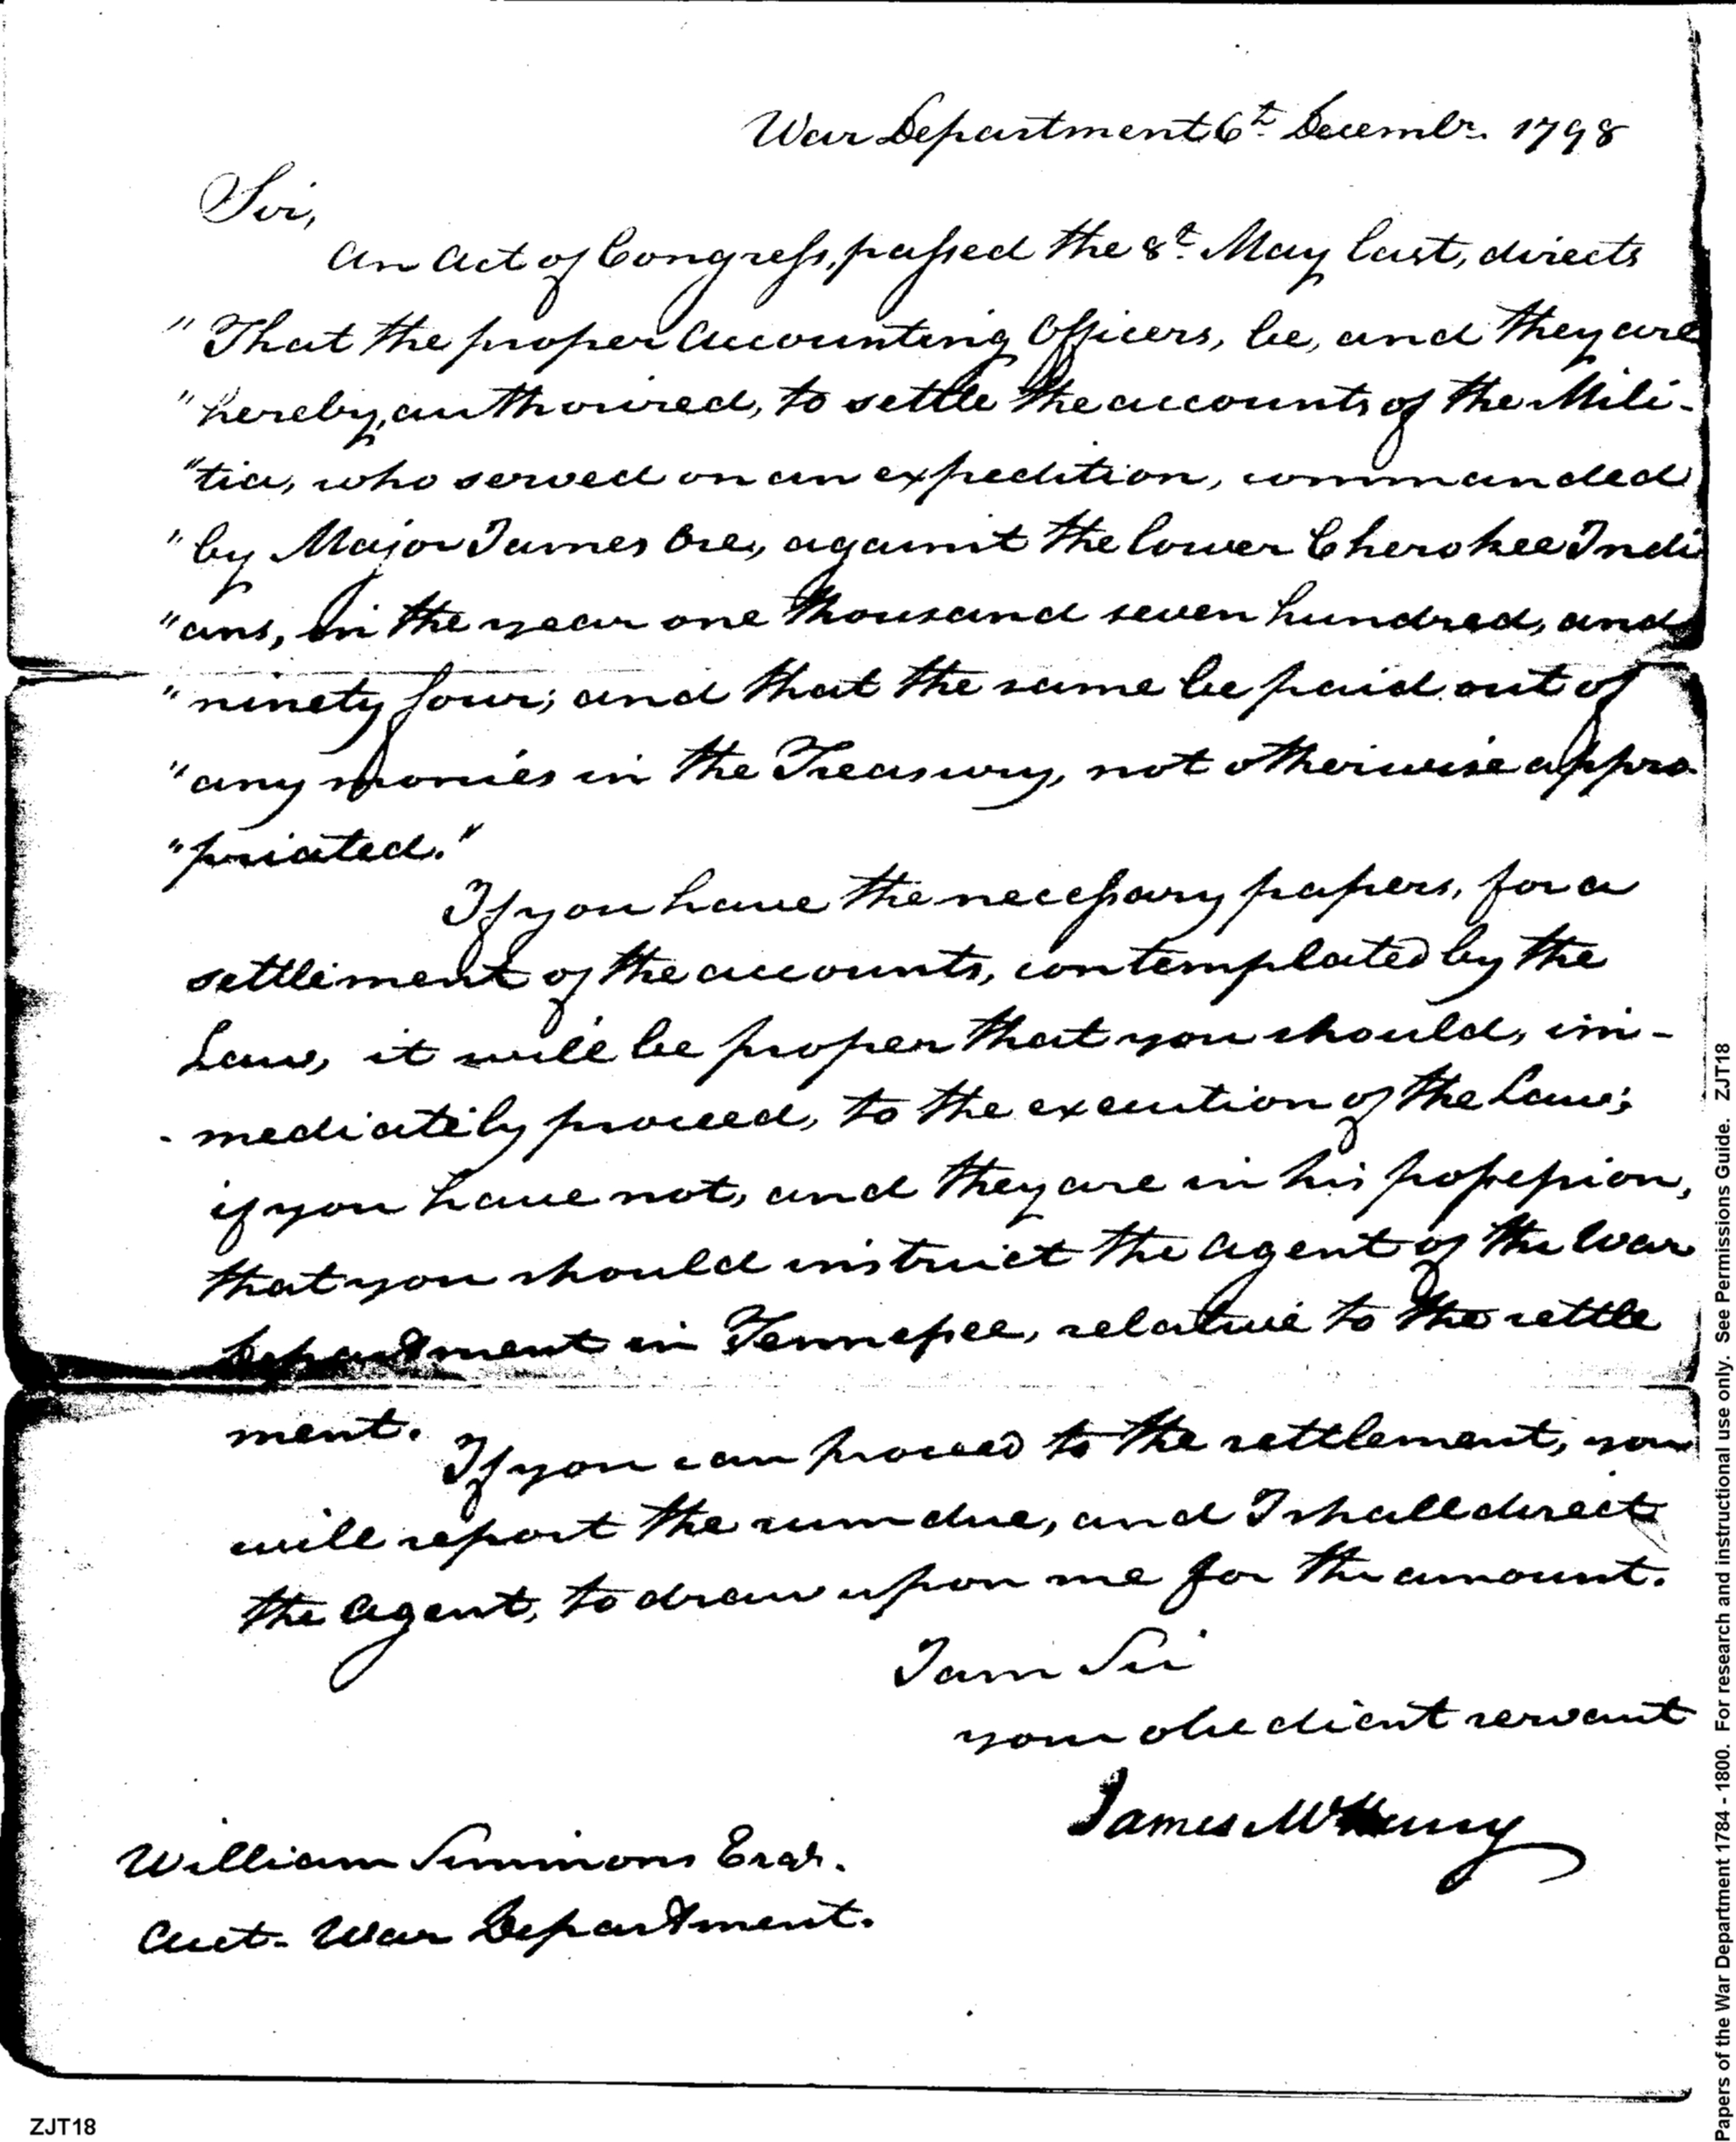 War Department 6th Decembr. 1798
Sir,
An Act of Congress, passed the 8th May last, directs
"That the proper Accounting Officers, be, and they are
"hereby, authorized, to settle the accounts of the Mili-
"tia, who served on an expedition, commanded
"by Major James Ore, against the lower Cherokee Indi
"ans, in the year one thousand seven hundred, and
"ninety four; and that the same be paid out of
"any monies in the Treasury, not otherwise appro
"priated."
If you have the necessary papers, for a
settlement of the accounts, contemplated by the
Law, it will be proper that you should, im-
-mediately proceed, to the execution of the Law;
if you have not, and they are in his possession,
that you should instruct the Agent of the War
Department in Tennessee, relative to the settle
ment.
If you can proceed to the settlement, you
will report the sum due, and I shall direct
the Agent, to draw upon me for the amount.
I am Sir
your obedient servant
James McHenry
William Simmons Esqr.
Acct. War Department.
ZJT18
Papers of the War Department 1784 - 1800. For research and instructional use only. See Permissions Guide. ZJT18